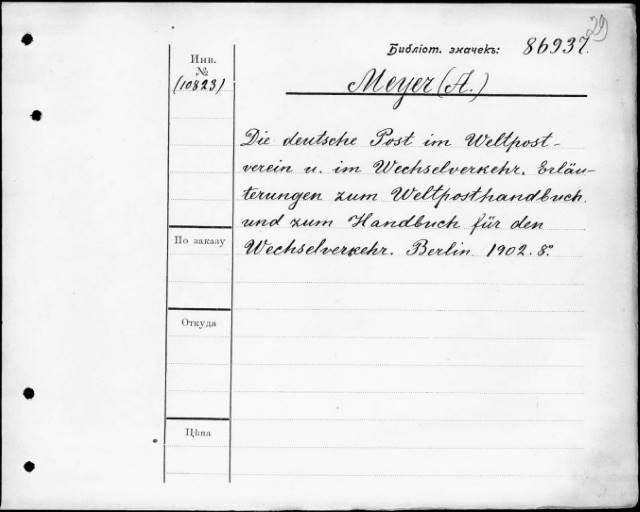 29
Библіот. значекъ: 86937.
Инв.
№
(10823)
Meyer (A.)
Die deutsche Post im Weltpost-
verein u. im Wechselverkehr. Erläu-
terungen zum Weltposthandbuch
und zum Handbuch für den
Wechselverkehr. Berlin 1902. 8°.
По заказу
Откуда
Цѣна